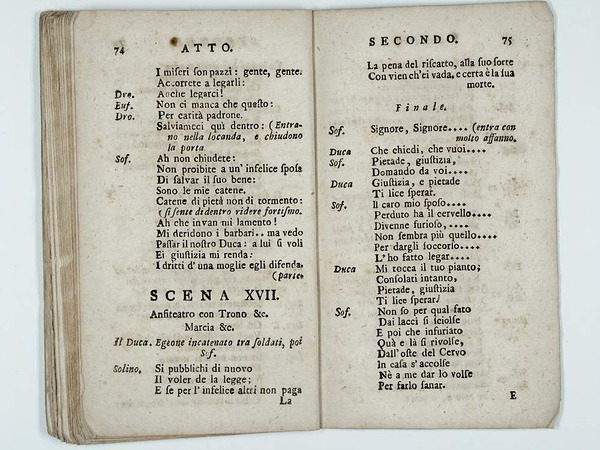 74
ATTO.
I miseri son pazzi: gente, gente.
Accorrete a legarli:
Dro. Anche legarci!
Euf. Non ci manca che questo:
Dro. Per carità padrone.
Salviamoci quì dentro: (Entra-
no nella locanda, e chiudono
la porta.
Sof. Ah non chiudete:
Non proibite a un' infelice sposa
Di salvar il suo bene:
Sono le mie catene.
Catene di pietà non di tormento:
(si sente di dentro ridere fortismo.
Ah che invan mi lamento!
Mi deridono i barbari.. ma vedo
Passar il nostro Duca: a lui si voli
Ei giustizia mi renda:
I dritti d' una moglie egli difenda.
(parte.
SCENA XVII.
Anfiteatro con Trono &c.
Marcia &c.
Il Duca. Egeone incatenato tra soldati, poi
Sof.
Solino. Si pubblichi di nuovo
Il voler de la legge;
E se per l' infelice altri non paga
La
SECONDO. 75
La pena del riscatto, alla suo sorte
Con vien ch'ei vada, e certa è la sua
morte.
Finale.
Sof. Signore, Signore.... (entra con
molto affanno.
Duca Che chiedi, che vuoi....
Sof. Pietade, giustizia,
Domando da voi....
Duca Giustizia, e pietade
Ti lice sperar.
Sof. Il caro mio sposo....
Perduto ha il cervello....
Divenne furioso,....
Non sembra più quello....
Per dargli soccorso....
L' ho fatto legar....
Duca Mi tocca il tuo pianto;
Consolati intanto,
Pietade, giustizia
Ti lice sperar.
Sof. Non so per qual fato
Dai lacci si sciolse
E poi che infuriato
Quà e là si rivolse,
Dall' oste del Cervo
In casa s' accolse
Nè a me dar lo volse
Per farlo sanar.
E